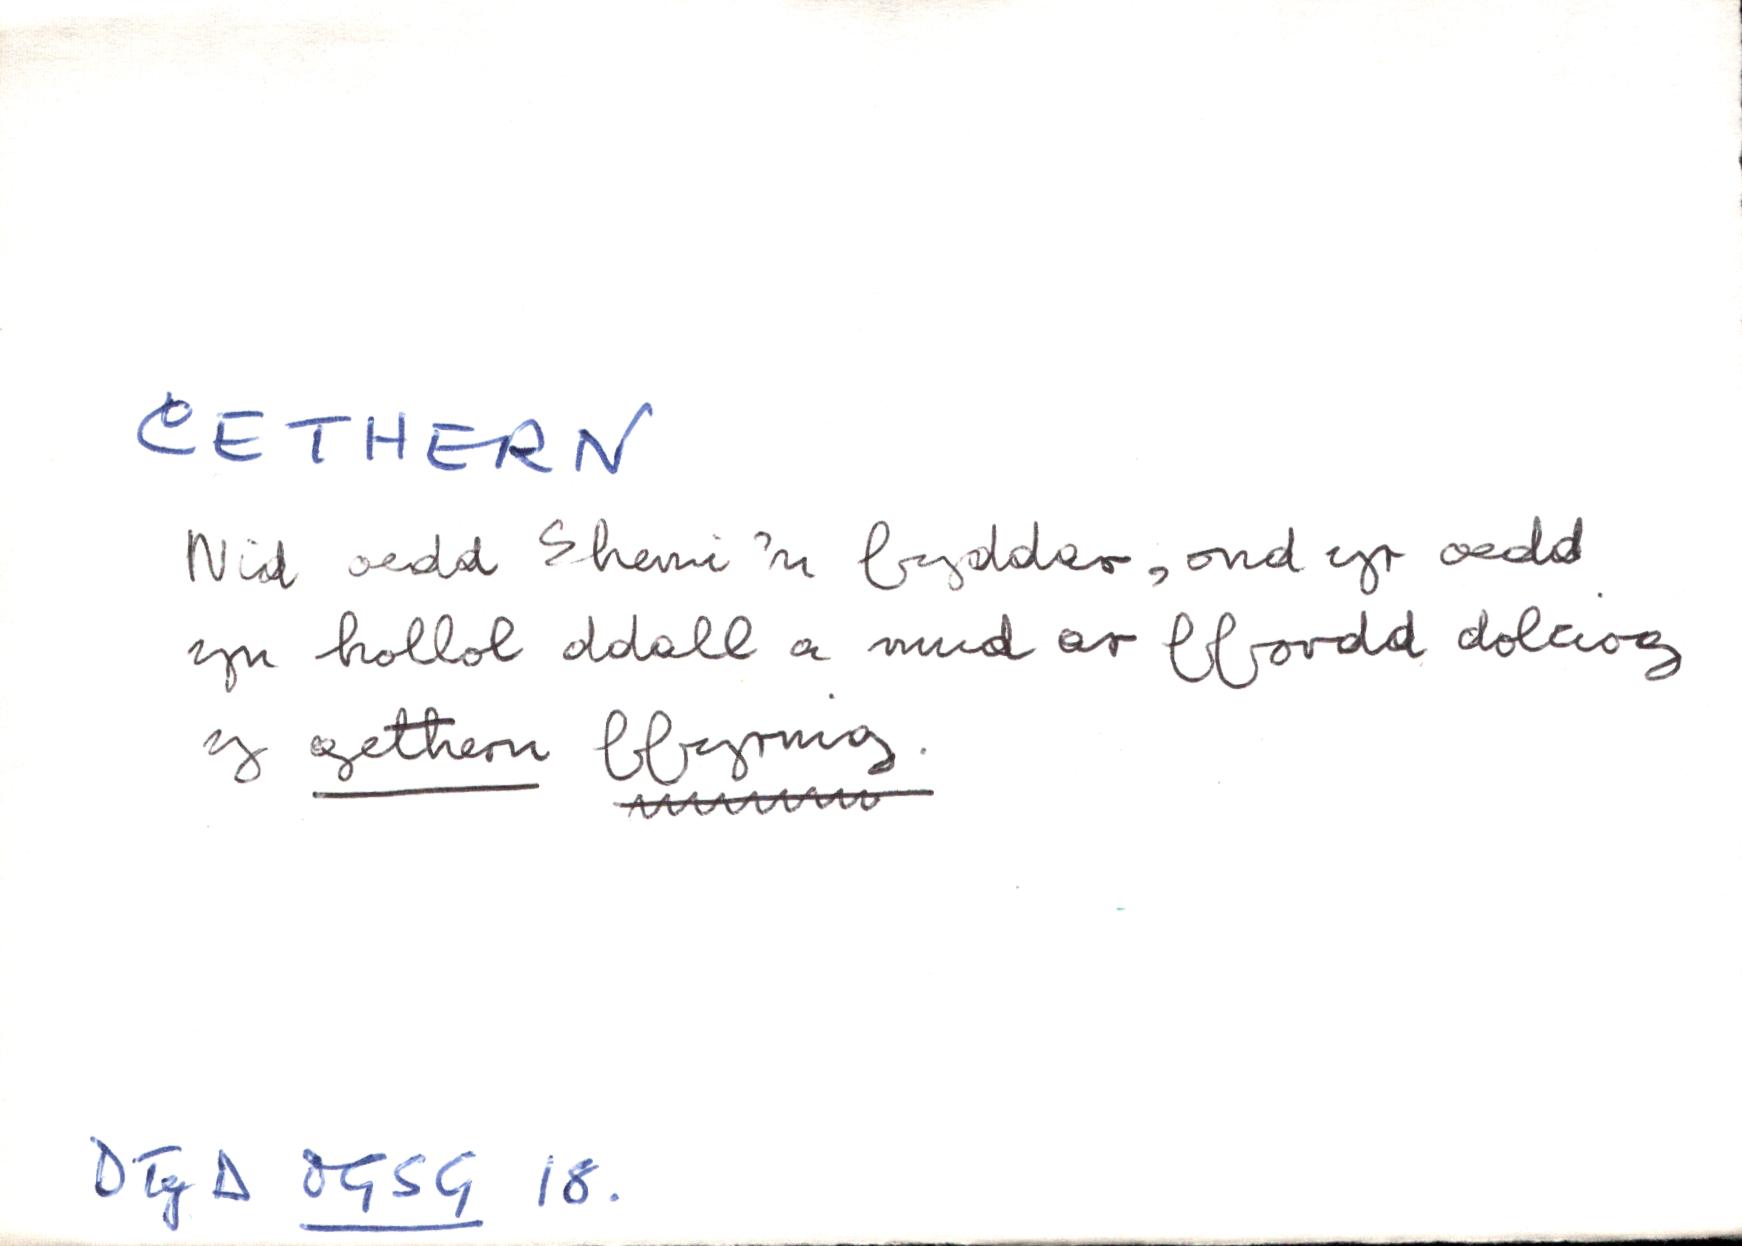 CETHERN
Nid oedd Shemi'n fyddar, ond yr oedd
yn hollol ddall a mud ar ffordd dolciog
y gethern ffyrnig.
DTgD OGSG 18.